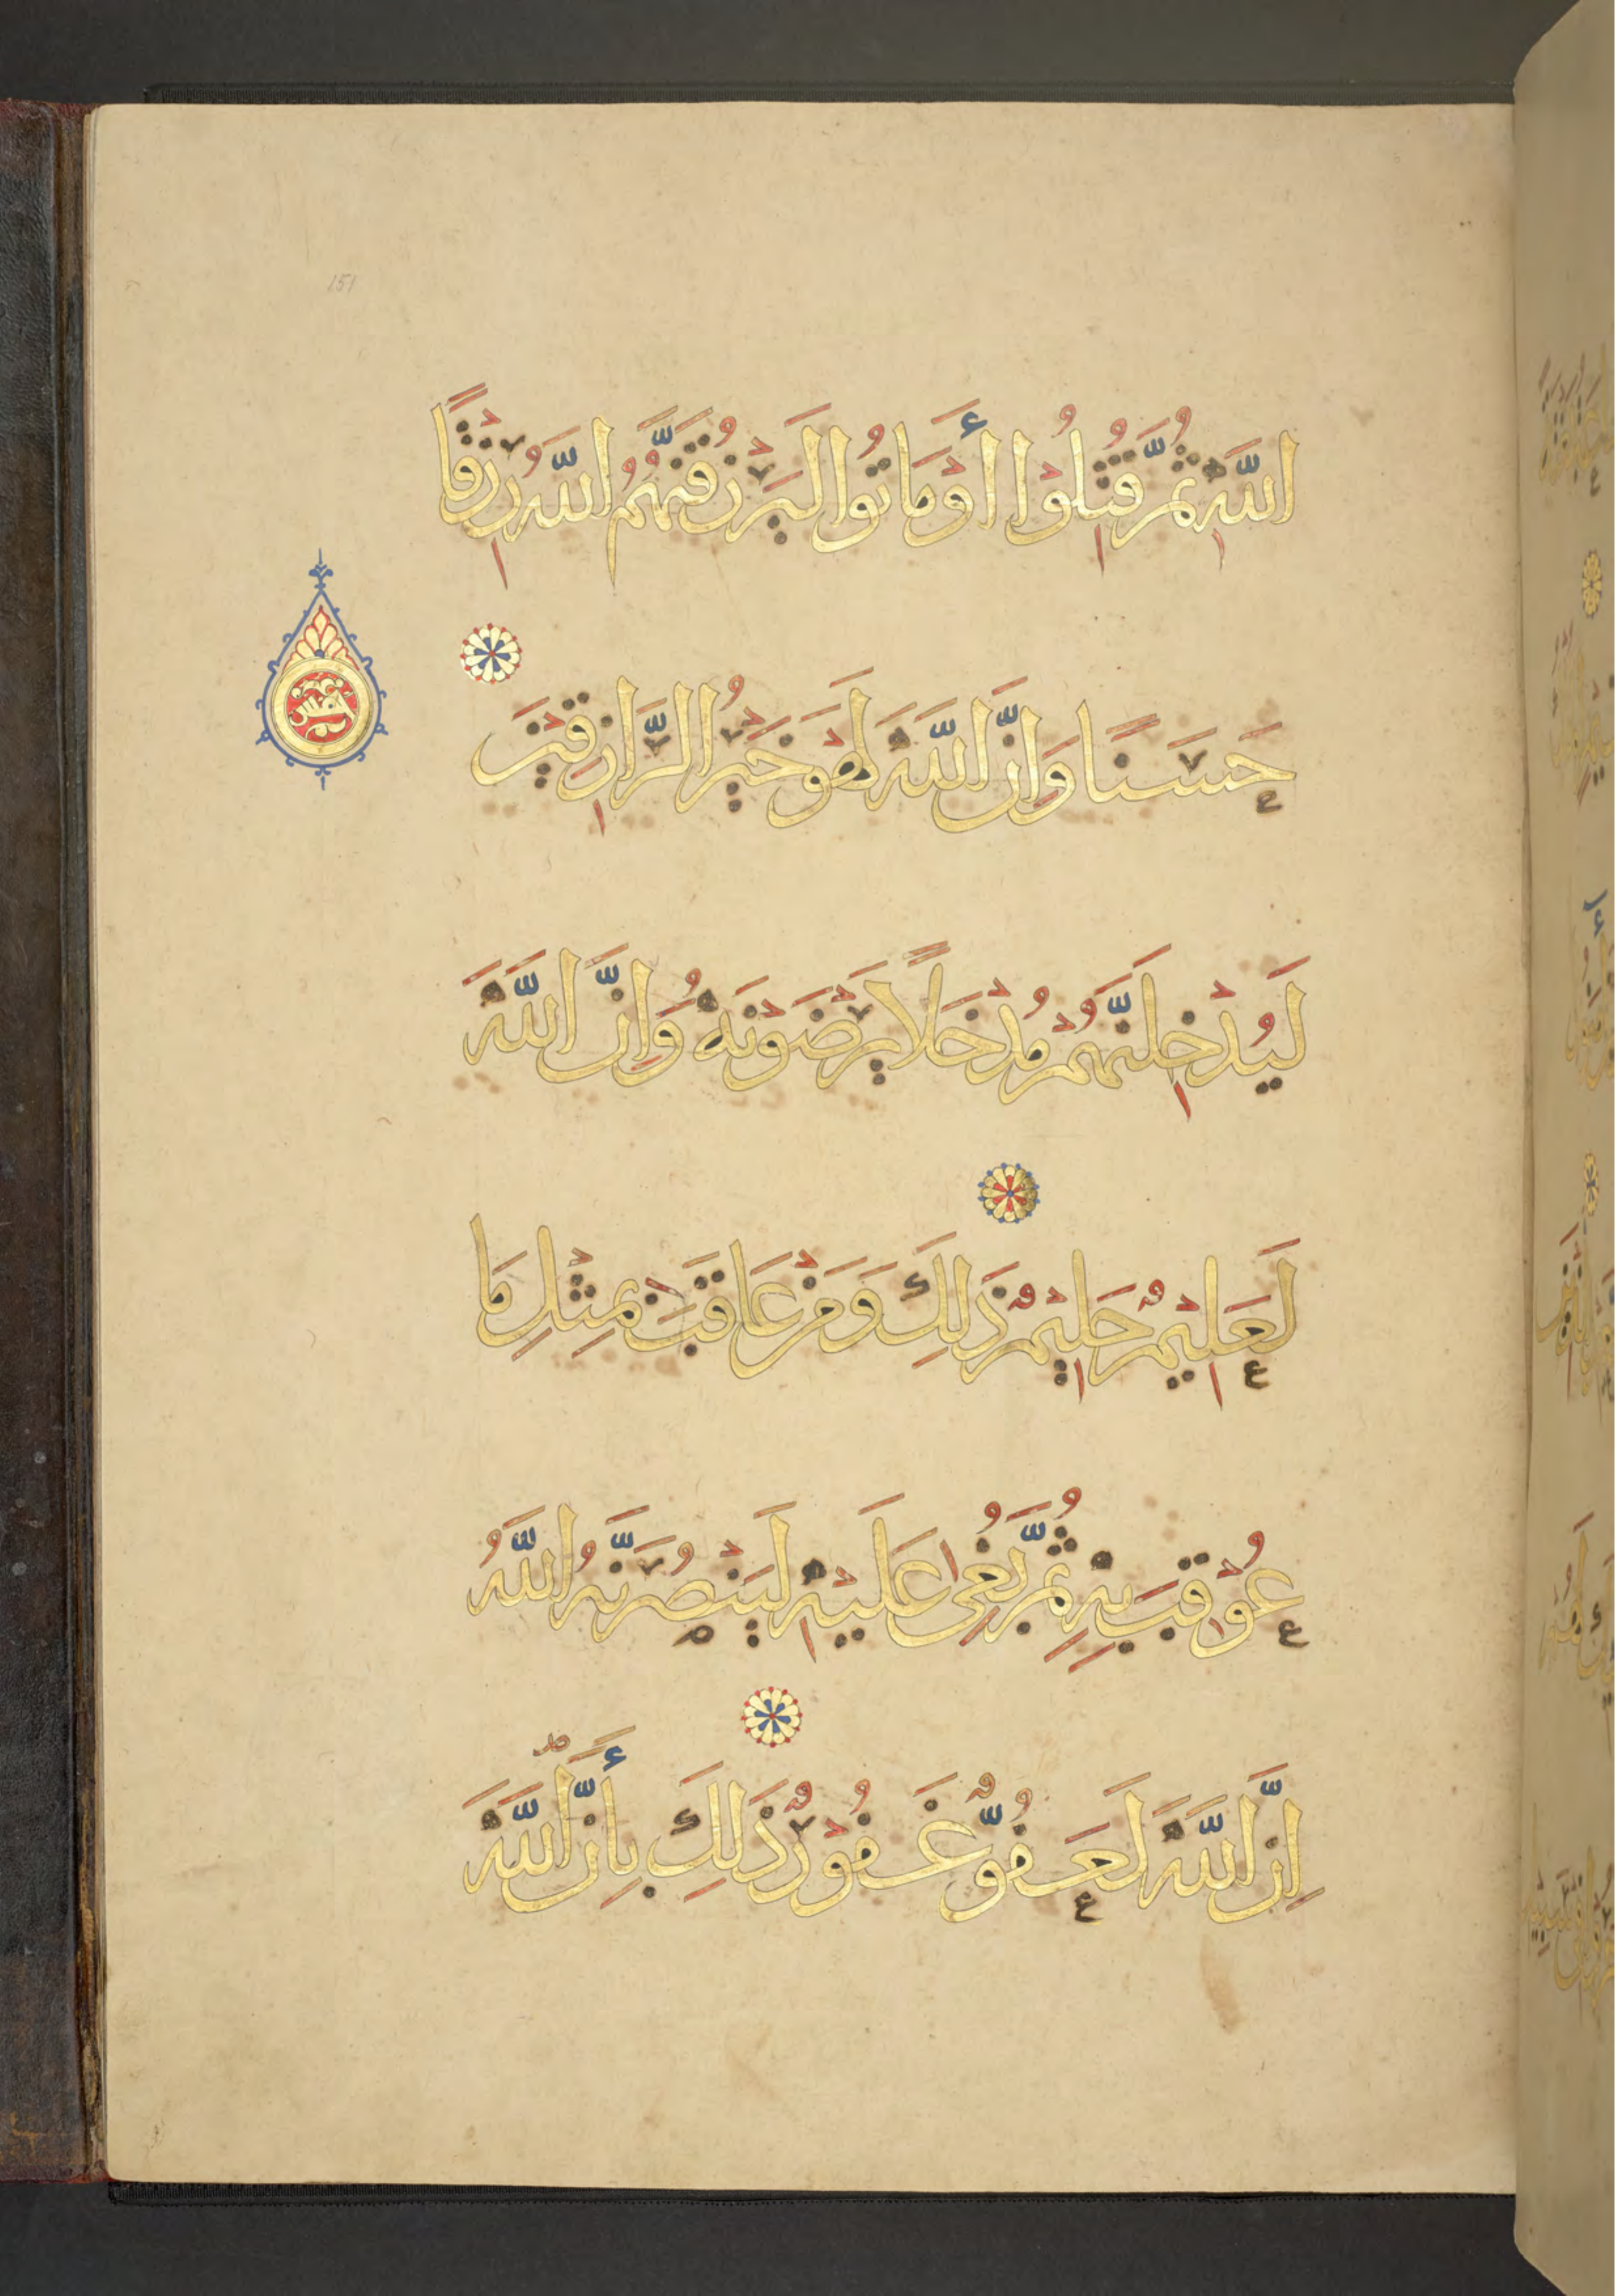 اللَّهِ ثُمَّ قُتِلُوْا أَوْ مَاتُوا لَيَرْزُقَنَّهُمُ اللَّهُ رِزْقًا
حَسَنًا وَاِنَّ اللَّهَ لَهُوَ خَيْرُ الرَّازِقِيْنَ
لَيُدْخِلَنَّهُمْ مُدْخَلًا يَرْضَوْنَهُ وَاِنَّ اللَّهَ
لَعَلِيْمٌ حَلِيْمٌ ذَلِكَ وَمَنْ عَاقَبَ بِمِثْلِ مَا
عُوْقِبَ بِهِ ثُمَّ بُغِىَ عَلَيْهِ لَيَنْصُرَنَّهُ اللَّهُ
اِنَّ اللَّهَ لَعَفُوٌّ غَفُوْرٌ ذَلِكَ بِأَنَّ اللَّهَ
151